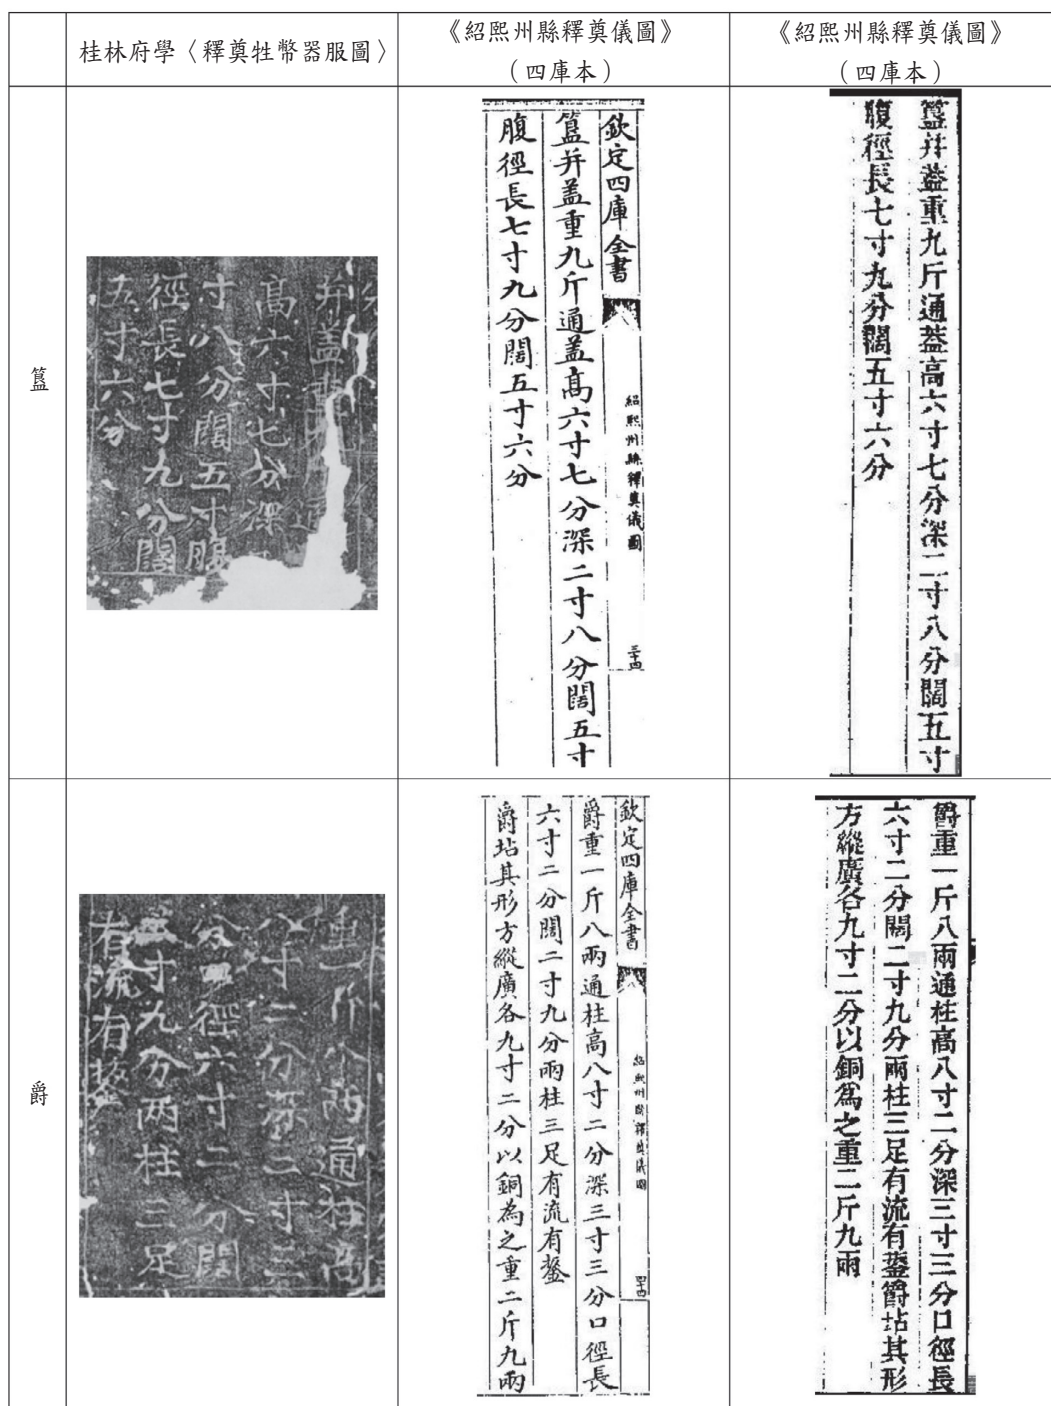 桂林府學〈釋奠牲幣器服圖〉
《紹熙州縣釋奠儀圖》
（四庫本）
《紹熙州縣釋奠儀圖》
（四庫本）
簋
并蓋重
高六寸七分深
寸八分闊五寸腹
徑長七寸九分闊
五寸六分
欽定四庫全書
紹熙州縣釋奠儀圖
三十四
簋并盖重九斤通盖高六寸七分深二寸八分闊五寸
腹徑長七寸九分闊五寸六分
簋并蓋重九斤通蓋高六寸七分深二寸八分闊五寸
腹徑長七寸九分闊五寸六分
爵
重一斤八兩通柱高
八寸二分深二寸三
分口徑六寸二分闊
二寸九分兩柱三足
有流有鋬
欽定四庫全書
紹熙州縣釋奠儀圖
爵重一斤八兩通柱高八寸二分深三寸三分口徑長
六寸二分闊二寸九分兩柱三足有流有鋬
爵坫其形方縱廣各九寸二分以銅為之重二斤九兩
爵重一斤八兩通柱高八寸二分深三寸三分口徑長
六寸二分闊二寸九分兩柱三足有流有鋬爵坫其形
方縱廣各九寸二分以銅爲之重二斤九兩